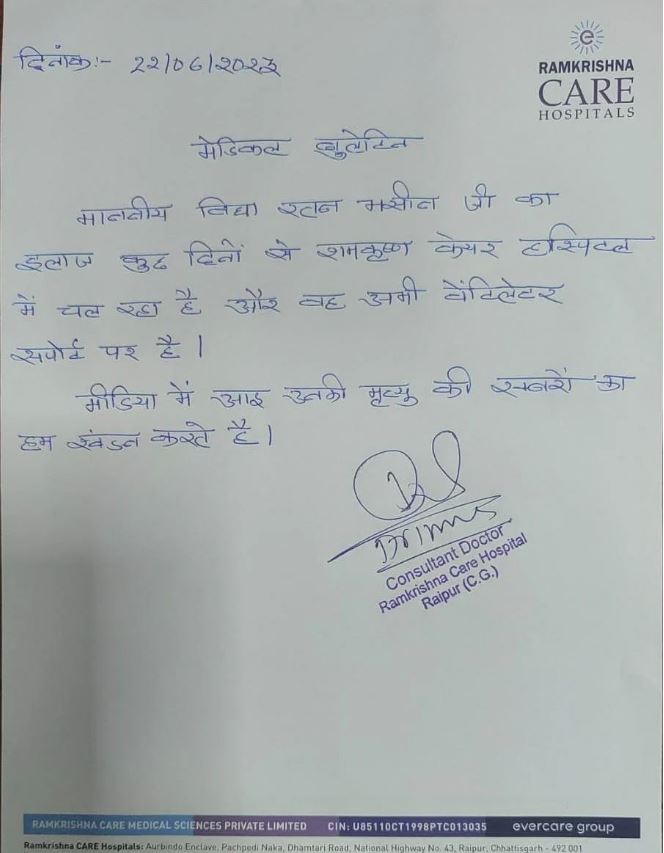 दिनांक:- 22/06/2023
RAMKRISHNA
CARE
HOSPITALS
मेडिकल बुलेटिन
माननीय विद्या रतन भसीन जी का
इलाज कुछ दिनों से रामकृष्ण केयर हॉस्पिटल
में चल रहा है और वह अभी वेंटिलेटर
सपोर्ट पर है।
मीडिया में आइ उनकी मृत्यु की खबरों का
हम खंडन करते है।
Consultant Doctor
Ramkrishna Care Hospital
Raipur (C.G.)
RAMKRISHNA CARE MEDICAL SCIENCES PRIVATE LIMITED CIN: U85110CT1998PTC013035 evercare group
Ramkrishna CARE Hospitals: Aurbindo Enclave, Pachpedi Naka, Dhamtari Road, National Highway No. 43, Raipur, Chhattisgarh - 492 001